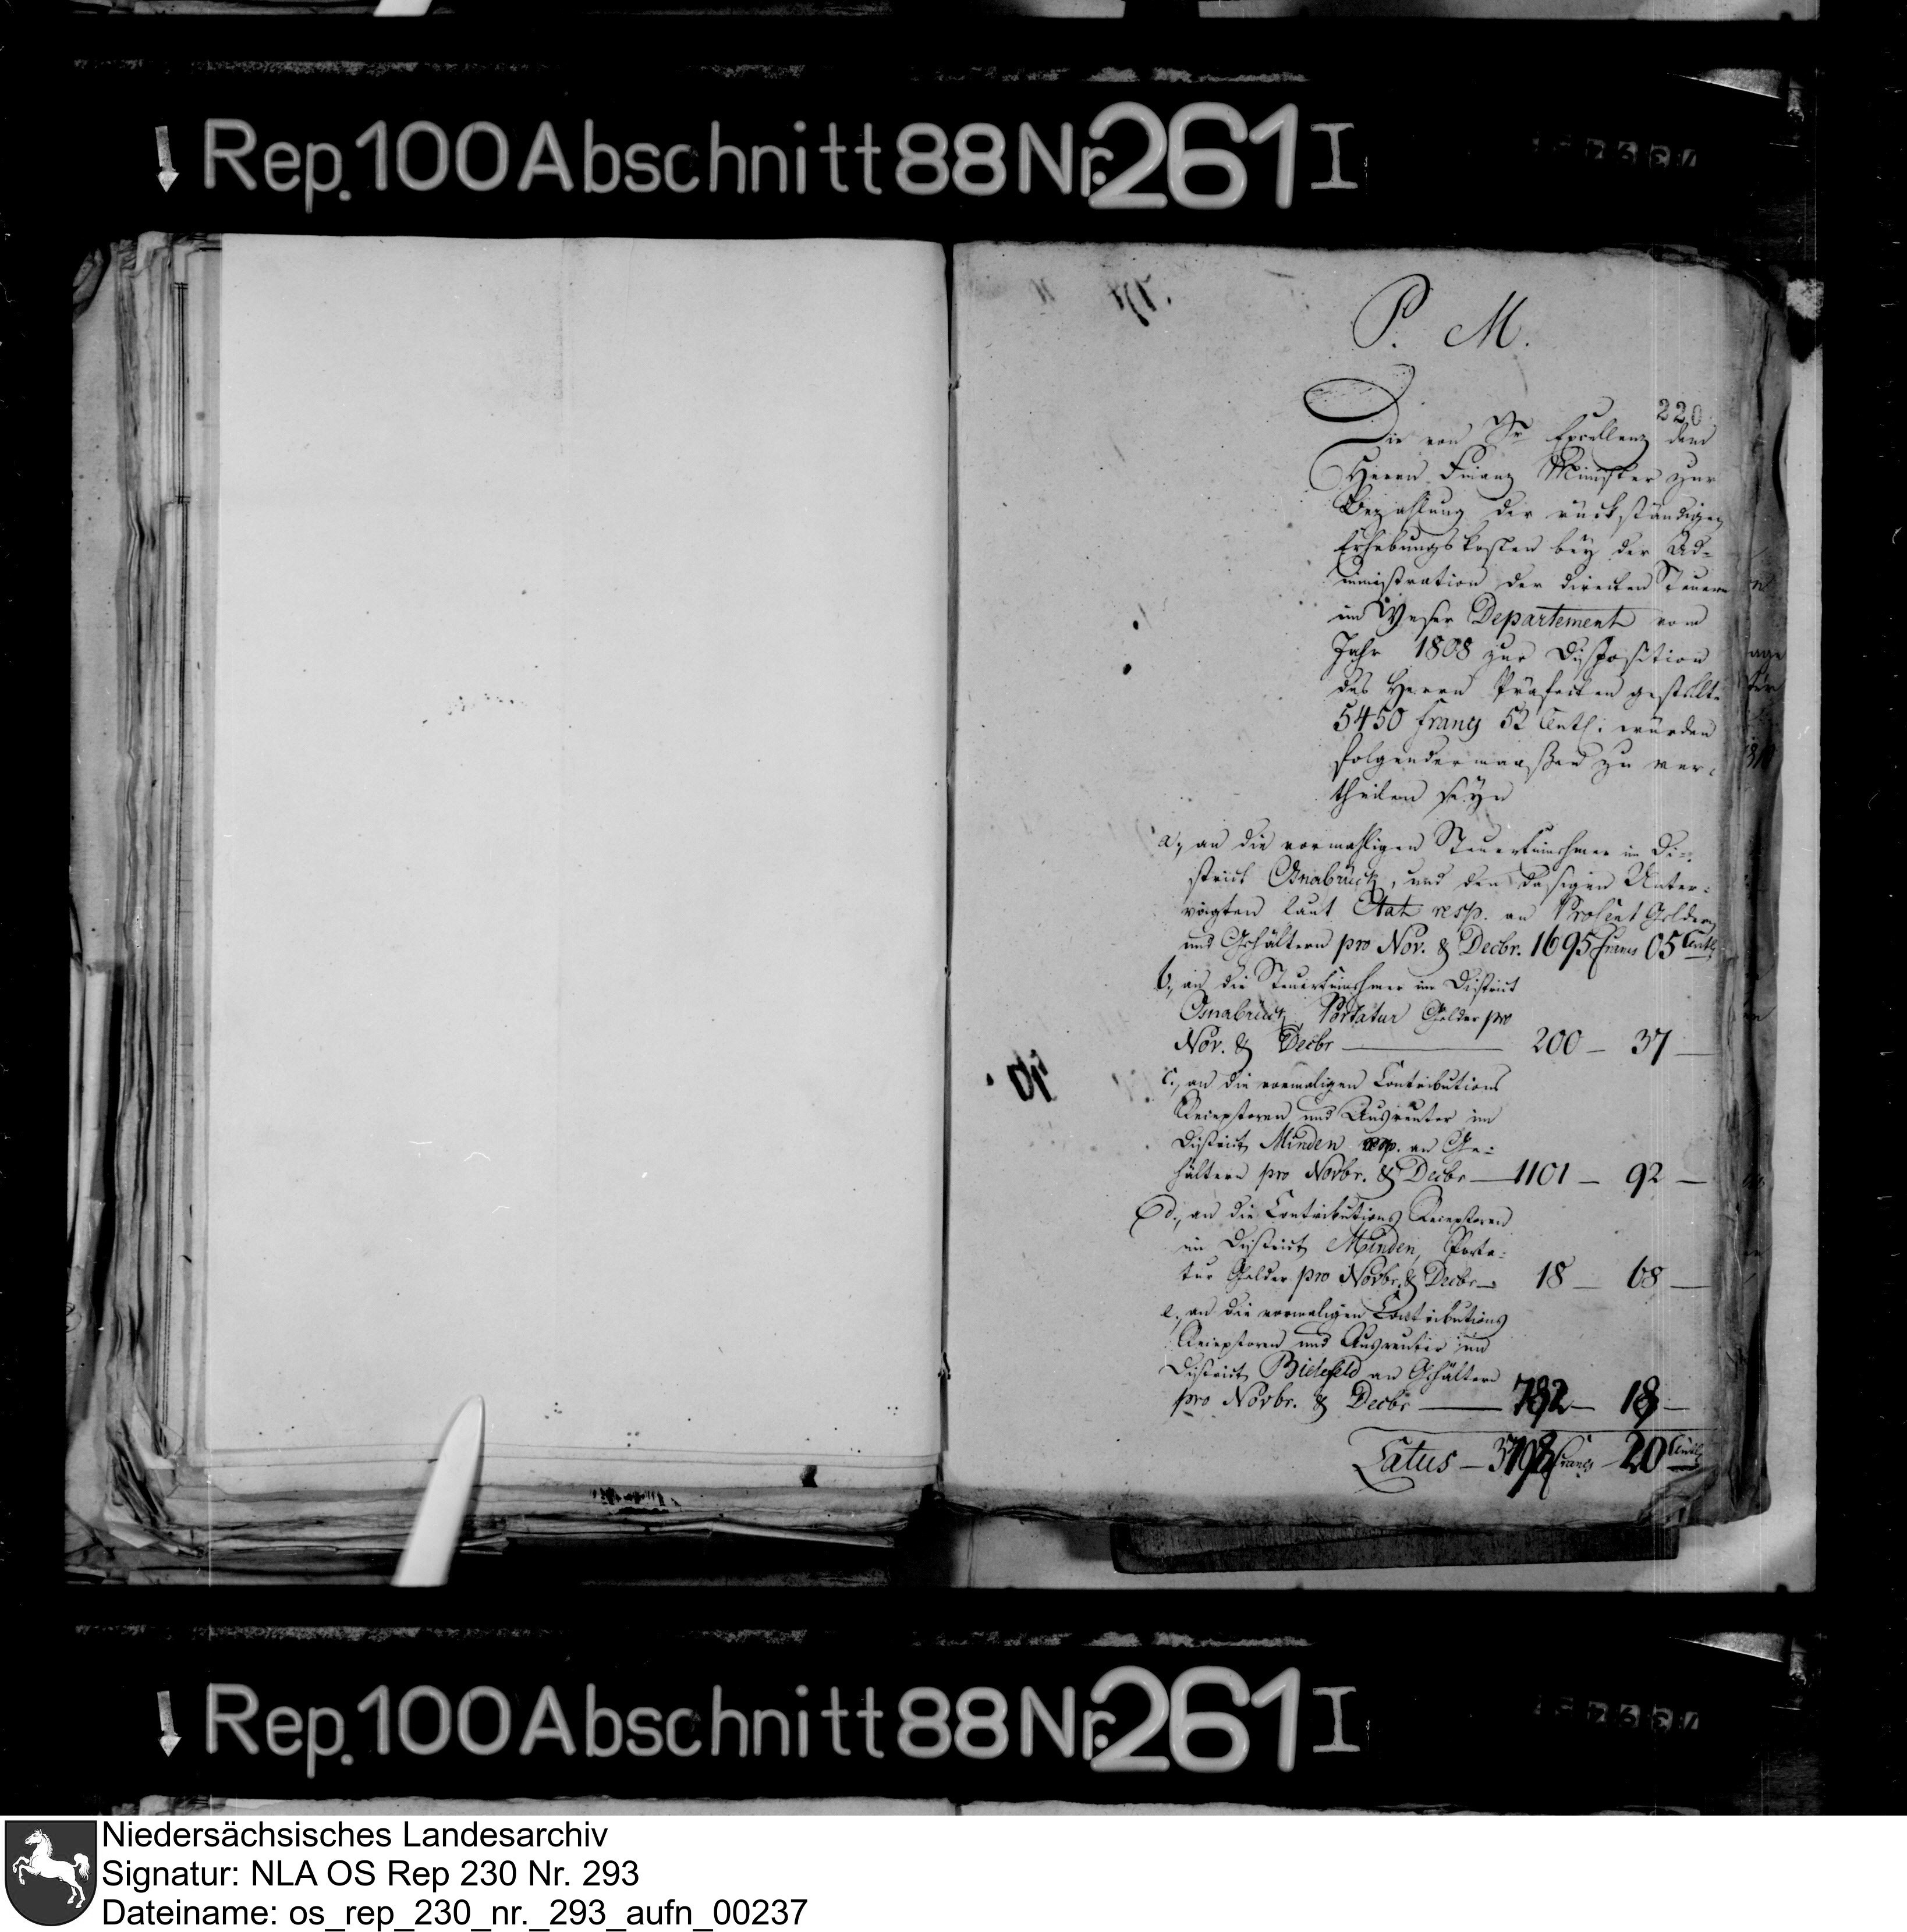 Rep. 100 Abschnitt 88 Nr. 261 I
P. M.
220
Die von Sr Excellenz dem
Herrn Finanz Minister zur
Bezahlung der rückständigen
Erhebungskosten bey der Ad-
ministration der directen Steuern
im Weser Departement vom
Jahr 1808 zur Disposition
des Herrn Präfecten gestellte
5450 Francs 52 Cent: würden
folgendermaaßen zu ver-
theilen seyn
a., an die vormahligen Steuereinnehmer im Di-
strict Osnabrück, und den dasigen Unter-
vögten laut Etat resp. an Procent Geldern
und Gehältern pro Nov. & Decbr. 1695 Francs 05 Cent
b., an die Steuereinnehmer im District
Osnabrück Portatur Gelder pro
Nov. & Decbr — 200 — 37 —
c., an die vormaligen Contributions
Receptoren und Ausreuter im
District Minden resp. an Ge-
hältern pro Novbr. & Decbr — 1101 — 92 —
d., an die Contributions Receptoren
im District Minden, Porta-
tur Gelder pro Novbr. & Decbr — 18 — 68 —
e., an die vormaligen Contributions
Receptoren und Ausreuter im
District Bielefeld an Gehältern
pro Novbr. & Decbr — 782 — 18 —
Latus — 3798 Francs — 20 Cent
Rep. 100 Abschnitt 88 Nr. 261 I
Niedersächsisches Landesarchiv
Signatur: NLA OS Rep 230 Nr. 293
Dateiname: os_rep_230_nr._293_aufn_00237